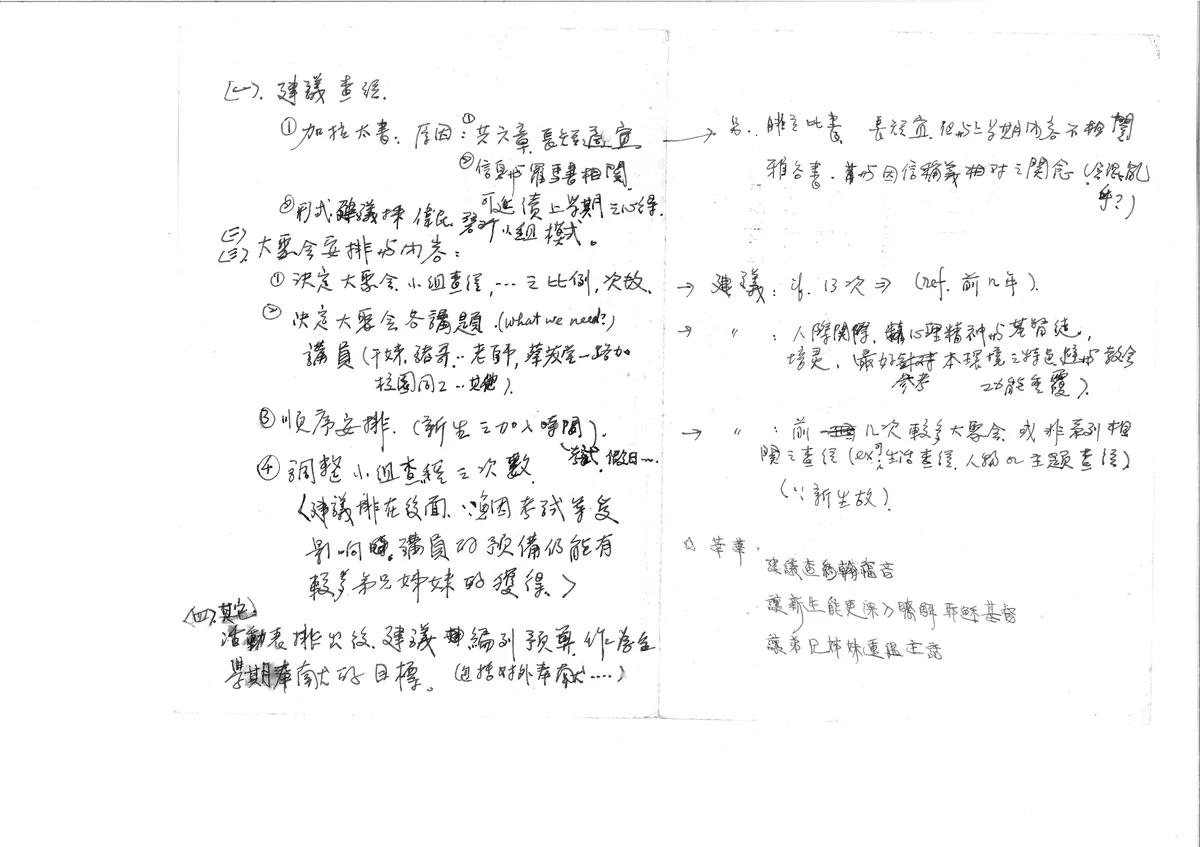 (一). 建議查經.
①加拉太書: 原因: ①共六章, 長短適宜
②信息與羅馬書相關
可延續上學期之心得.
②形式建議採
小組模式。
(二)
(三). 大聚會安排與內容:
① 決定大聚會、小組查經, … 之比例, 次數.
② 決定大聚會各講題. (what we need?)
講員 (于姊, 豬哥.. 老師,
校園同工 … 其他).
③ 順序安排. (新生之加入時間).
考試 假日….
④ 調整小組查經之次數
(建議排在後面, ∵雖因考試等受
影响時。講員的預備仍能有
較多弟兄姊妹的獲得。)
(四). 其它:
活動表排出後, 建議編列預算, 作為全
學期奉献的目標。(包括對外奉献….)
→ 另. 腓立比書 長短宜, 但與上學期內容不相關
雅各書, 與因信稱義相對之關念 (會混亂
乎?)
→ 建議: if. 13次 ⇒ (ref. 前几年).
→ 〃 : 人際關際, 心理精神與基督徒,
培灵, (最好針對本環境之特色避與教會
參考 功能重覆).
→ 〃 : 前几次較多大聚會 或非系列相
關之查經 (ex: 生活查經, 人物 or 主題查經)
(∵新生故).
☆ 華華.
建議查約翰福音
讓新生能更深入瞭解耶穌基督
讓弟兄姊妹重溫主話